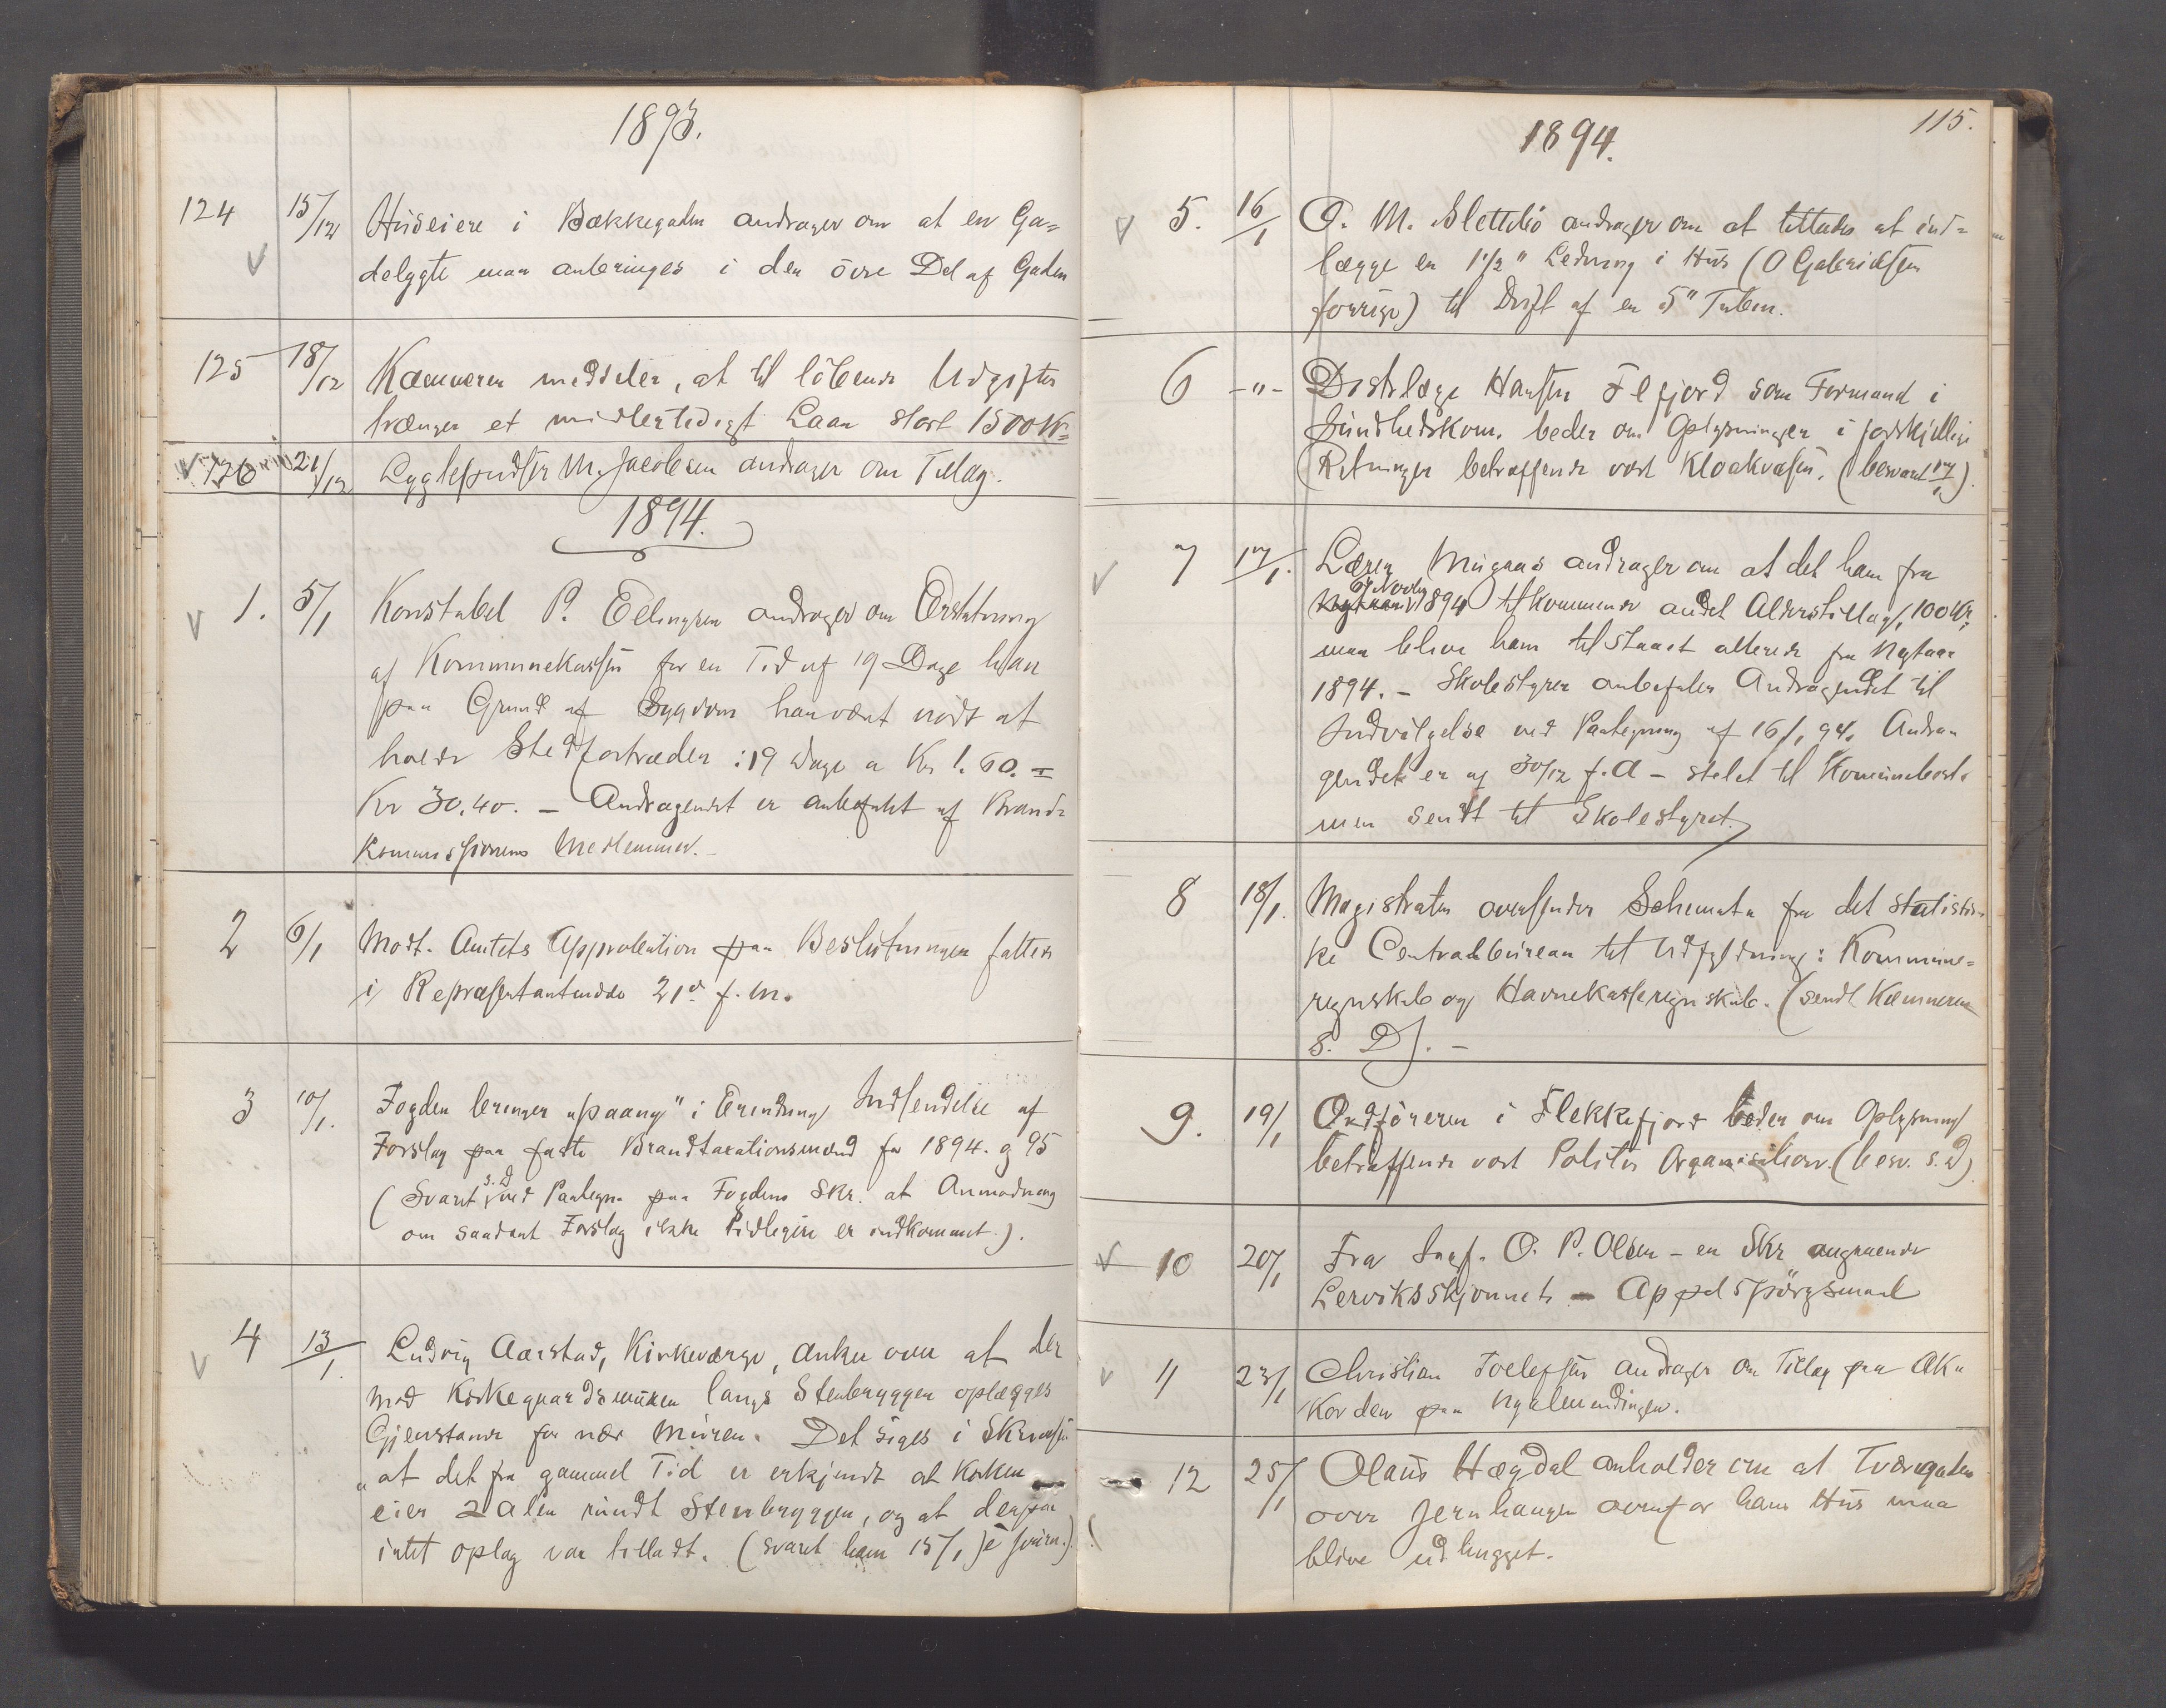 1893.
124 15/12 Huseiere i Bækkegaden andrager om at en Ga=
delygte maa anbringes i den övre Del af Gaden
125 18/12 Kæmneren meddeler, at til löbende Udgifter
trænges et midlertidigt Laan stort 1500 Kr
126 21/12 Lygtepudser M. Jacobsen andrager om Tillæg.
1894.
1. 5/1 Konstabel P. Ellingsen andrager om Erstatning
af Kommunekassen for en Tid af 19 Dage han
paa Grund af Sygdom har vært nödt at
holde Stedfortræder: 19 Dage a Kr 1.60. =
Kr 30.40. – Andragendet er anbefalet af Brand=
kommissionens Medlemmer. –
2 6/1 Modt. Amtets Approbation paa Beslutninger fattet
i Repræsentantmöde 21de f. M.
3 10/1. Fogden bringer "paany" i Erindring Indsendelse af
Forslag paa faste Brandtaxationsmænd for 1894 og 95
(Svaret s. D ved Paategn. paa Fogdens Skr. at Anmodning
om saadant Forslag ikke tidligere er indkommet.).
4 13/1. Ludvig Aarstad, Kirkeværge, anker over at der
mod Kirkegaardsmuren langs Stenbryggen oplægges
Gjenstande for nær Muren. Det siges i Skrivelsen
"at det fra gammel Tid er erkjendt at Kirken
eier 2 Alen rundt Stenbryggen, og at derpaa
intet oplag var tilladt. (svaret ham 15/1
115.
1894.
5. 16/1 O. M. Slettebö andrager om at tillades at ind=
lægge en 1 1/2" Ledning i Hus (O Gabrielsen
forrige) til Drift af en 5" Turbin.
6 -"- Distrlæge Hansen Flfjord som Formand i
Sundhedskom. beder om Oplysninger i forskjellige
Retninger betræffende vort Kloakvæsen. (besvaret 17/1).
7 17/1. Lærer Mugaas andrager om at det ham fra
1894 tilkommende andet Alderstillæg, 100 Kr,
maa blive ham tilstaaet allerede fra Nytaar
1894. – Skolestyret anbefaler Andragendet til
Indvilgelse ved Paategning af 16/1 94. Andra=
gendet er af 30/12 f. A – stilet til Kommunebest.
men sendt til Skolestyret.
8 18/1. Magistraten oversender Schemata fra det statistis=
ke Centralbureau til Udfyldning: Kommune=
regnskab og Havnekasseregnskab. (sendt Kæmneren
s. D). –
9. 19/1 Ordföreren i Flekkefjord beder om Oplysning
betræffende vort Politis Organisation. (besv. s. D)
10 20/1 Fra Sagf. O. P. Olsen – en Skr angaaende
Lerviksskjönnets – Appelspörgsmaal
11 23/1 Christian Tollefsen andrager om Tillæg paa Ak=
korden paa Nyalmendingen.
12 25/1 Olaus Hægdal anholder om at Tværgaden
over Jernhaugen ovenfor hans Hus maa
blive udhugget.